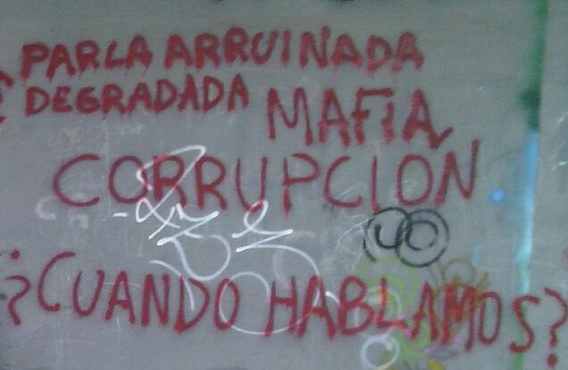 PARLA ARRUINADA
DEGRADADA MAFIA
CORRUPCION
¿CUANDO HABLAMOS?